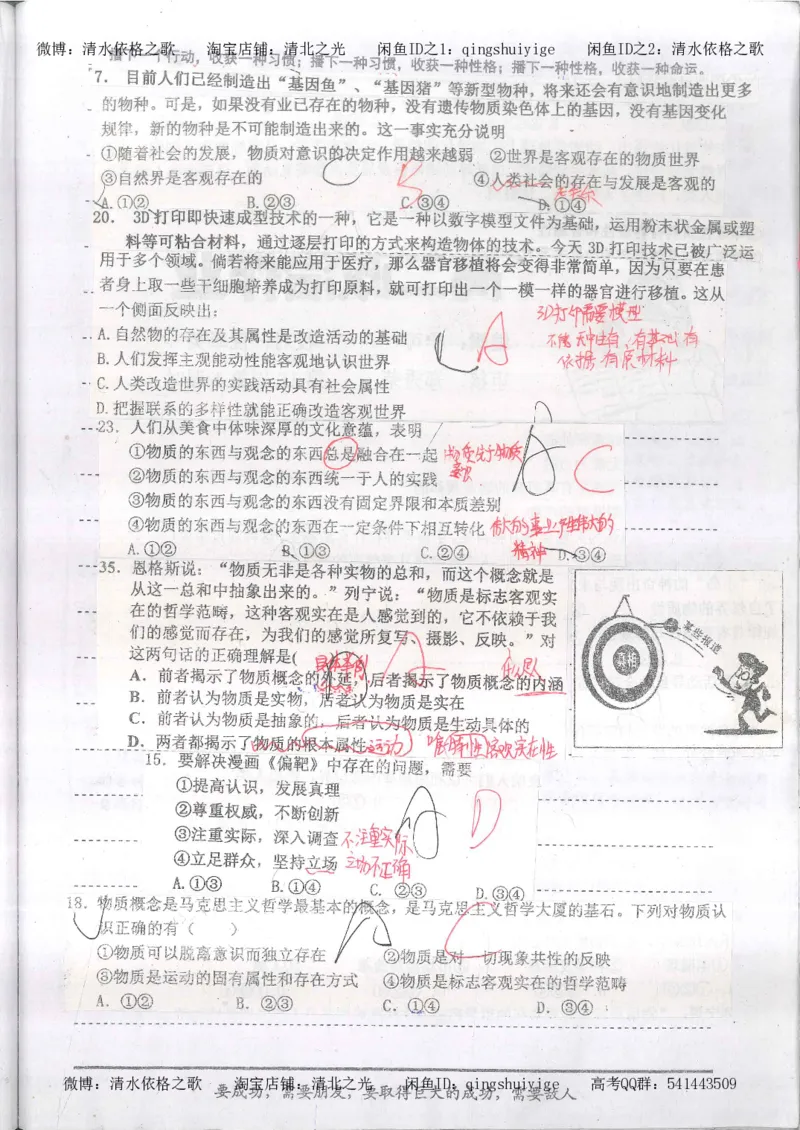 微博：清水依格之歌　淘宝店铺：清北之光　闲鱼ID之1：qingshuiyige　闲鱼ID之2：清水依格之歌
播下一个行动，收获一种习惯；播下一种习惯，收获一种性格；播下一种性格，收获一种命运。
7. 目前人们已经制造出“基因鱼”、“基因猪”等新型物种，将来还会有意识地制造出更多
的物种。可是，如果没有业已存在的物种，没有遗传物质染色体上的基因，没有基因变化
规律，新的物种是不可能制造出来的。这一事实充分说明
①随着社会的发展，物质对意识的决定作用越来越弱　②世界是客观存在的物质世界
③自然界是客观存在的　④人类社会的存在与发展是客观的
A.①②　B.②③　C.③④　D.①④
B
20. 3D打印即快速成型技术的一种，它是一种以数字模型文件为基础，运用粉末状金属或塑
料等可粘合材料，通过逐层打印的方式来构造物体的技术。今天 3D 打印技术已被广泛运
用于多个领域。倘若将来能应用于医疗，那么器官移植将会变得非常简单，因为只要在患
者身上取一些干细胞培养成为打印原料，就可打印出一个一模一样的器官进行移植。这从
一个侧面反映出：
3D打印需要模型
A.自然物的存在及其属性是改造活动的基础
A
不能无中生有，有基础有
B.人们发挥主观能动性能客观地认识世界
依据有原材料
C.人类改造世界的实践活动具有社会属性
D.把握联系的多样性就能正确改造客观世界
23. 人们从美食中体味深厚的文化意蕴，表明
①物质的东西与观念的东西总是融合在一起
②物质的东西与观念的东西统一于人的实践
A
C
③物质的东西与观念的东西没有固定界限和本质差别
④物质的东西与观念的东西在一定条件下相互转化
伟大的事业产生伟大的
精神
A.①②　B.①③　C.②④　D.③④
35. 恩格斯说：“物质无非是各种实物的总和，而这个概念就是
从这一总和中抽象出来的。”列宁说：“物质是标志客观实
在的哲学范畴，这种客观实在是人感觉到的，它不依赖于我
们的感觉而存在，为我们的感觉所复写、摄影、反映。”对
这两句话的正确理解是(
A
A. 前者揭示了物质概念的外延，后者揭示了物质概念的内涵
B. 前者认为物质是实物，后者认为物质是实在
C. 前者认为物质是抽象的，后者认为物质是生动具体的
D. 两者都揭示了物质的根本属性
运动
唯一特性客观实在性
某些报道
真相
15. 要解决漫画《偏靶》中存在的问题，需要
①提高认识，发展真理
②尊重权威，不断创新
A
D
③注重实际，深入调查
不注重实际
④立足群众，坚持立场
立场不正确
A.①③　B.①④　C. ②③　D.③④
18. 物质概念是马克思主义哲学最基本的概念，是马克思主义哲学大厦的基石。下列对物质认
识正确的有（　）
A
C
①物质可以脱离意识而独立存在　②物质是对一切现象共性的反映
③物质是运动的固有属性和存在方式　④物质是标志客观实在的哲学范畴
A. ①②　B. ②③　C. ①④　D. ③④
微博：清水依格之歌　淘宝店铺：清北之光　闲鱼ID：qingshuiyige　高考QQ群：541443509
要成功，需要朋友，要取得巨大的成功，需要敌人